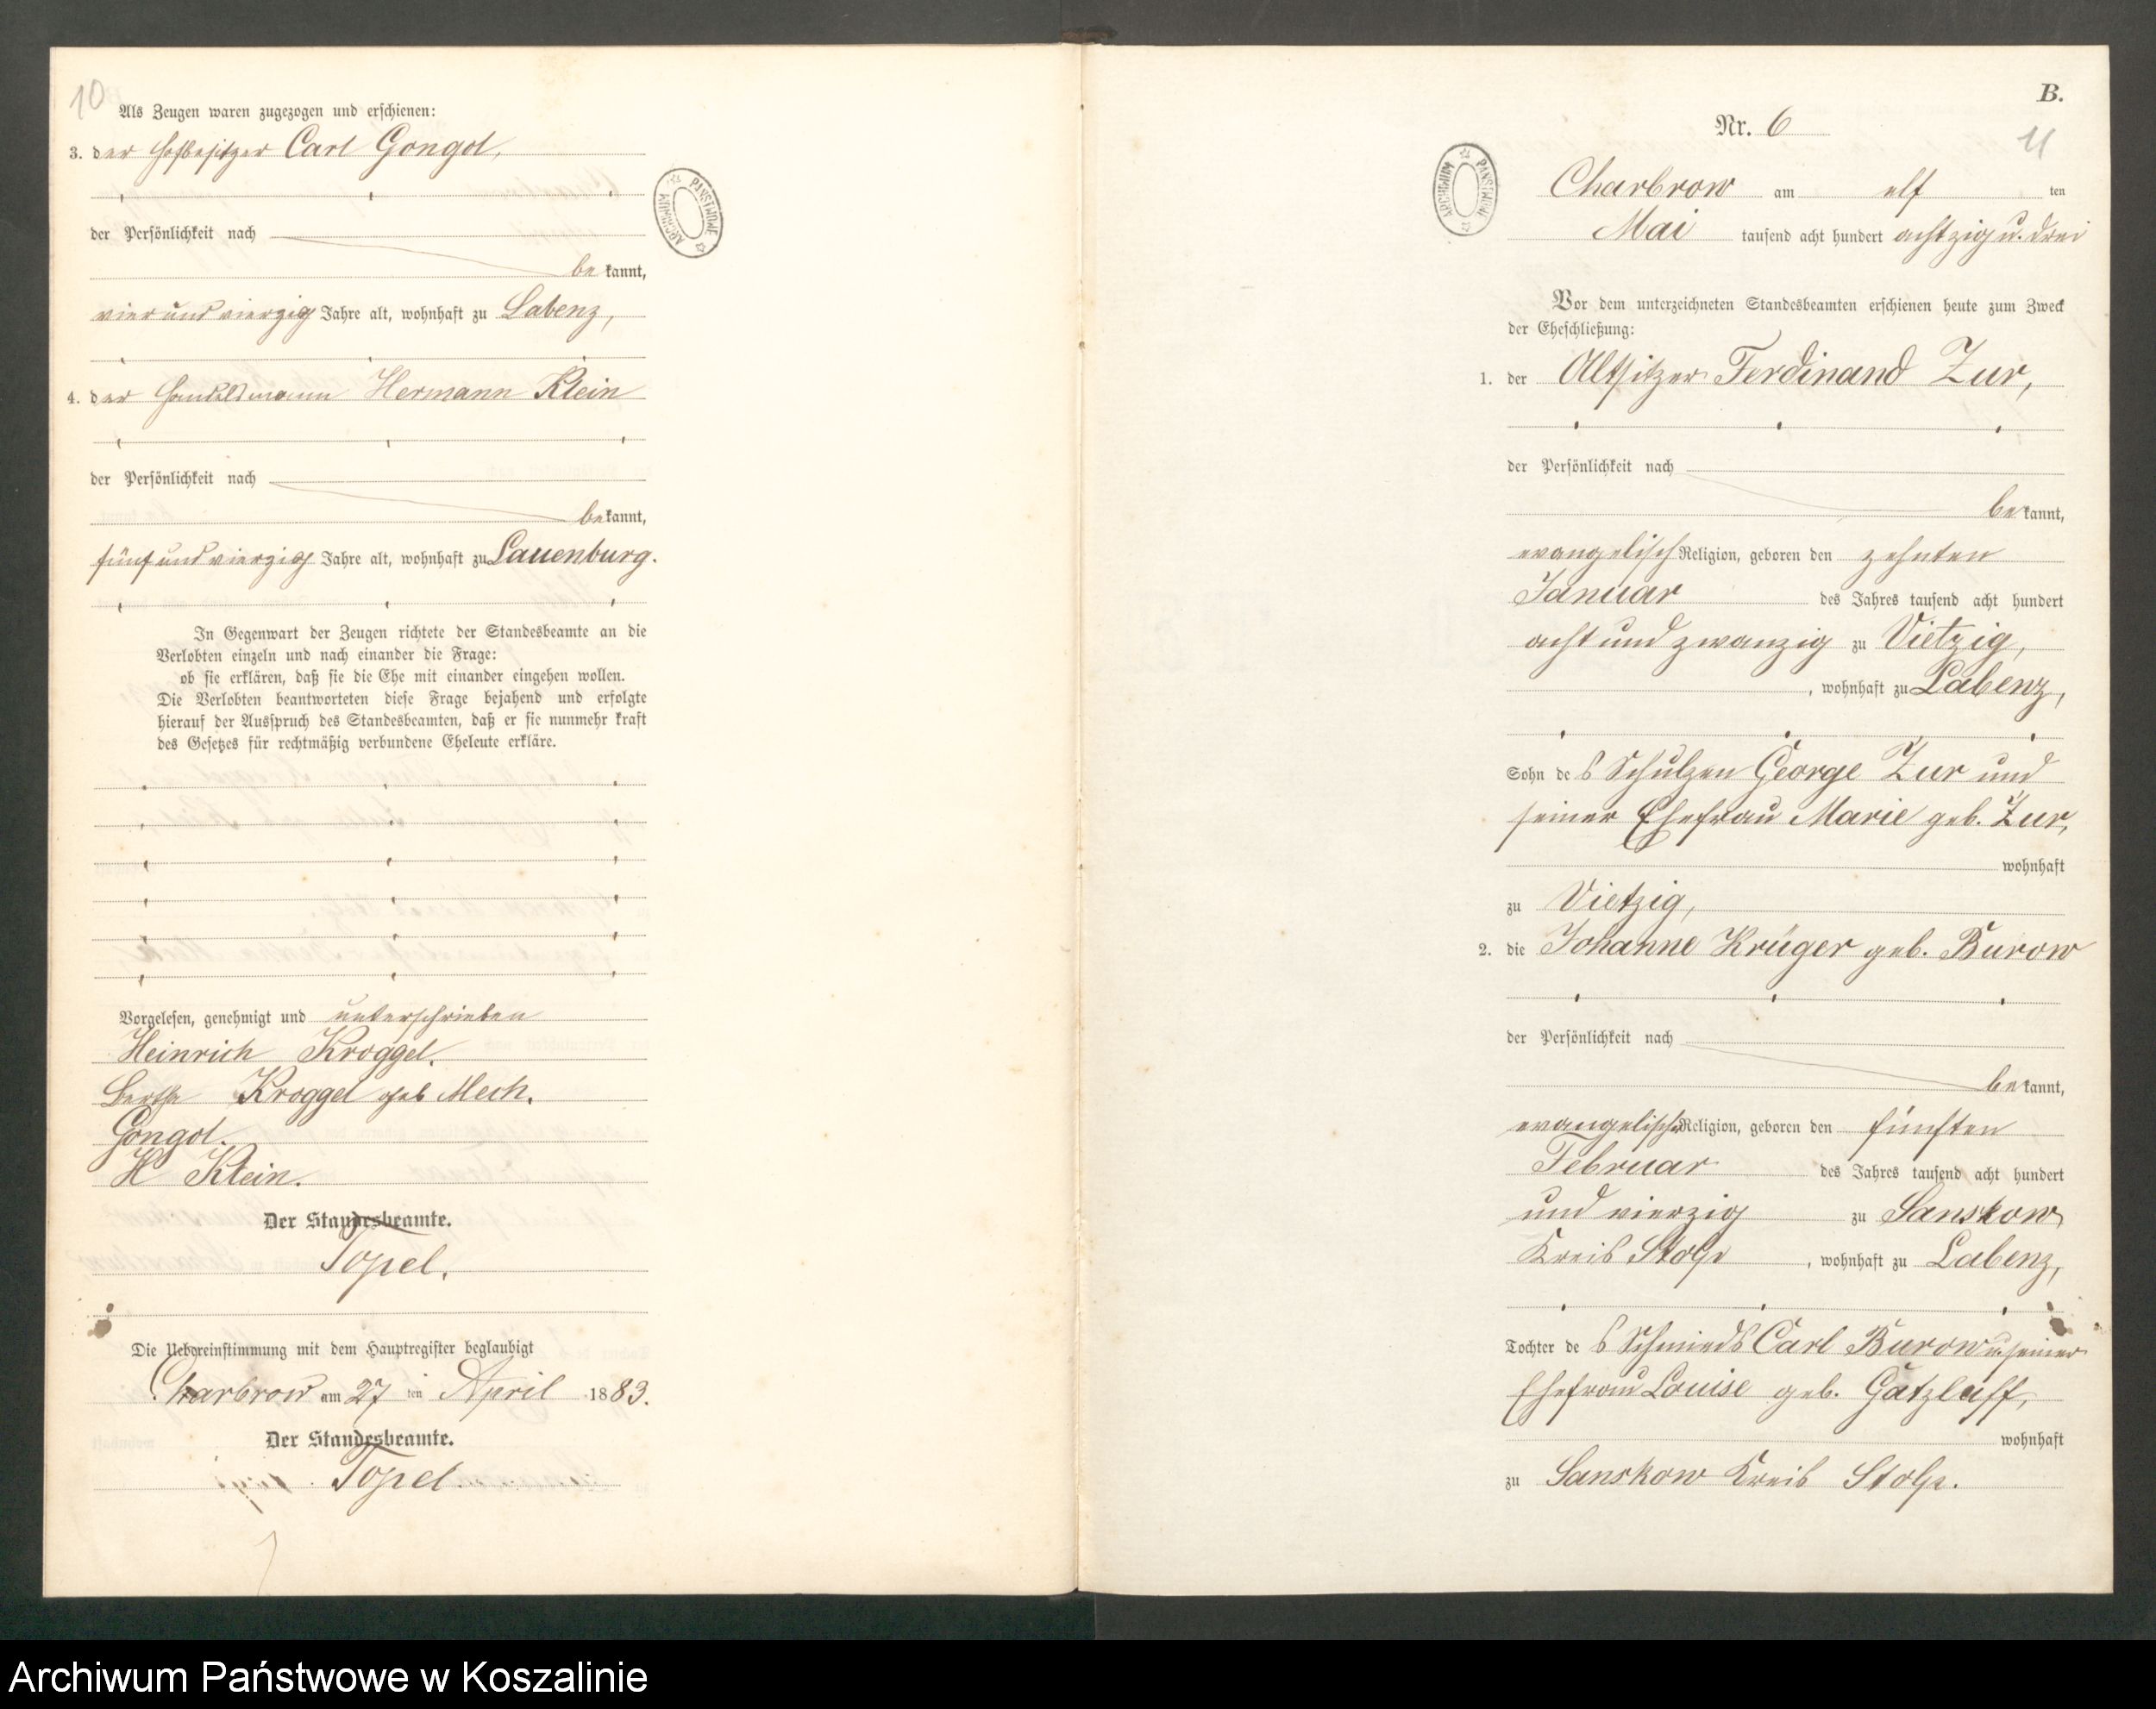 10
Als Zeugen waren zugezogen und erschienen:
3. der Hofbesitzer Carl Gongol,
der Persönlichkeit nach
bekannt,
vier und vierzig Jahre alt, wohnhaft zu Labenz,
4. der Handelsmann Hermann Klein
der Persönlichkeit nach
bekannt,
fünf und vierzig Jahre alt, wohnhaft zu Lauenburg.
In Gegenwart der Zeugen richtete der Standesbeamte an die
Verlobten einzeln und nach einander die Frage:
ob sie erklären, daß sie die Ehe mit einander eingehen wollen.
Die Verlobten beantworteten diese Frage bejahend und erfolgte
hierauf der Ausspruch des Standesbeamten, daß er sie nunmehr kraft
des Gesetzes für rechtmäßig verbundene Eheleute erkläre.
Vorgelesen, genehmigt und unterschrieben
Heinrich Kroggel.
Bertha Kroggel geb Mech.
Gongol.
H Klein.
Der Standesbeamte.
Topel.
Die Uebereinstimmung mit dem Hauptregister beglaubigt
Charbrow am 27 ten April 1883.
Der Standesbeamte.
Topel.
ARCHIWUM PAŃSTWOWE
B.
Nr. 6
11
ARCHIWUM PAŃSTWOWE
Charbrow am elf ten
Mai tausend acht hundert achtzig u. drei
Vor dem unterzeichneten Standesbeamten erschienen heute zum Zweck
der Eheschließung:
1. der Altsitzer Ferdinand Zur,
der Persönlichkeit nach
bekannt,
evangelisch Religion, geboren den zehnten
Januar des Jahres tausend acht hundert
acht und zwanzig zu Vietzig,
, wohnhaft zu Labenz,
Sohn des Schulzen George Zur und
seiner Ehefrau Marie geb. Zur,
wohnhaft
zu Vietzig,
2. die Johanne Krüger geb. Burow
der Persönlichkeit nach
bekannt,
evangelisch Religion, geboren den fünften
Februar des Jahres tausend acht hundert
und vierzig zu Sanskow
Kreis Stolp, wohnhaft zu Labenz,
Tochter des Schmieds Carl Burow u. seiner
Ehefrau Louise geb. Gatzlaff,
wohnhaft
zu Sanskow Kreis Stolp.
Archiwum Państwowe w Koszalinie